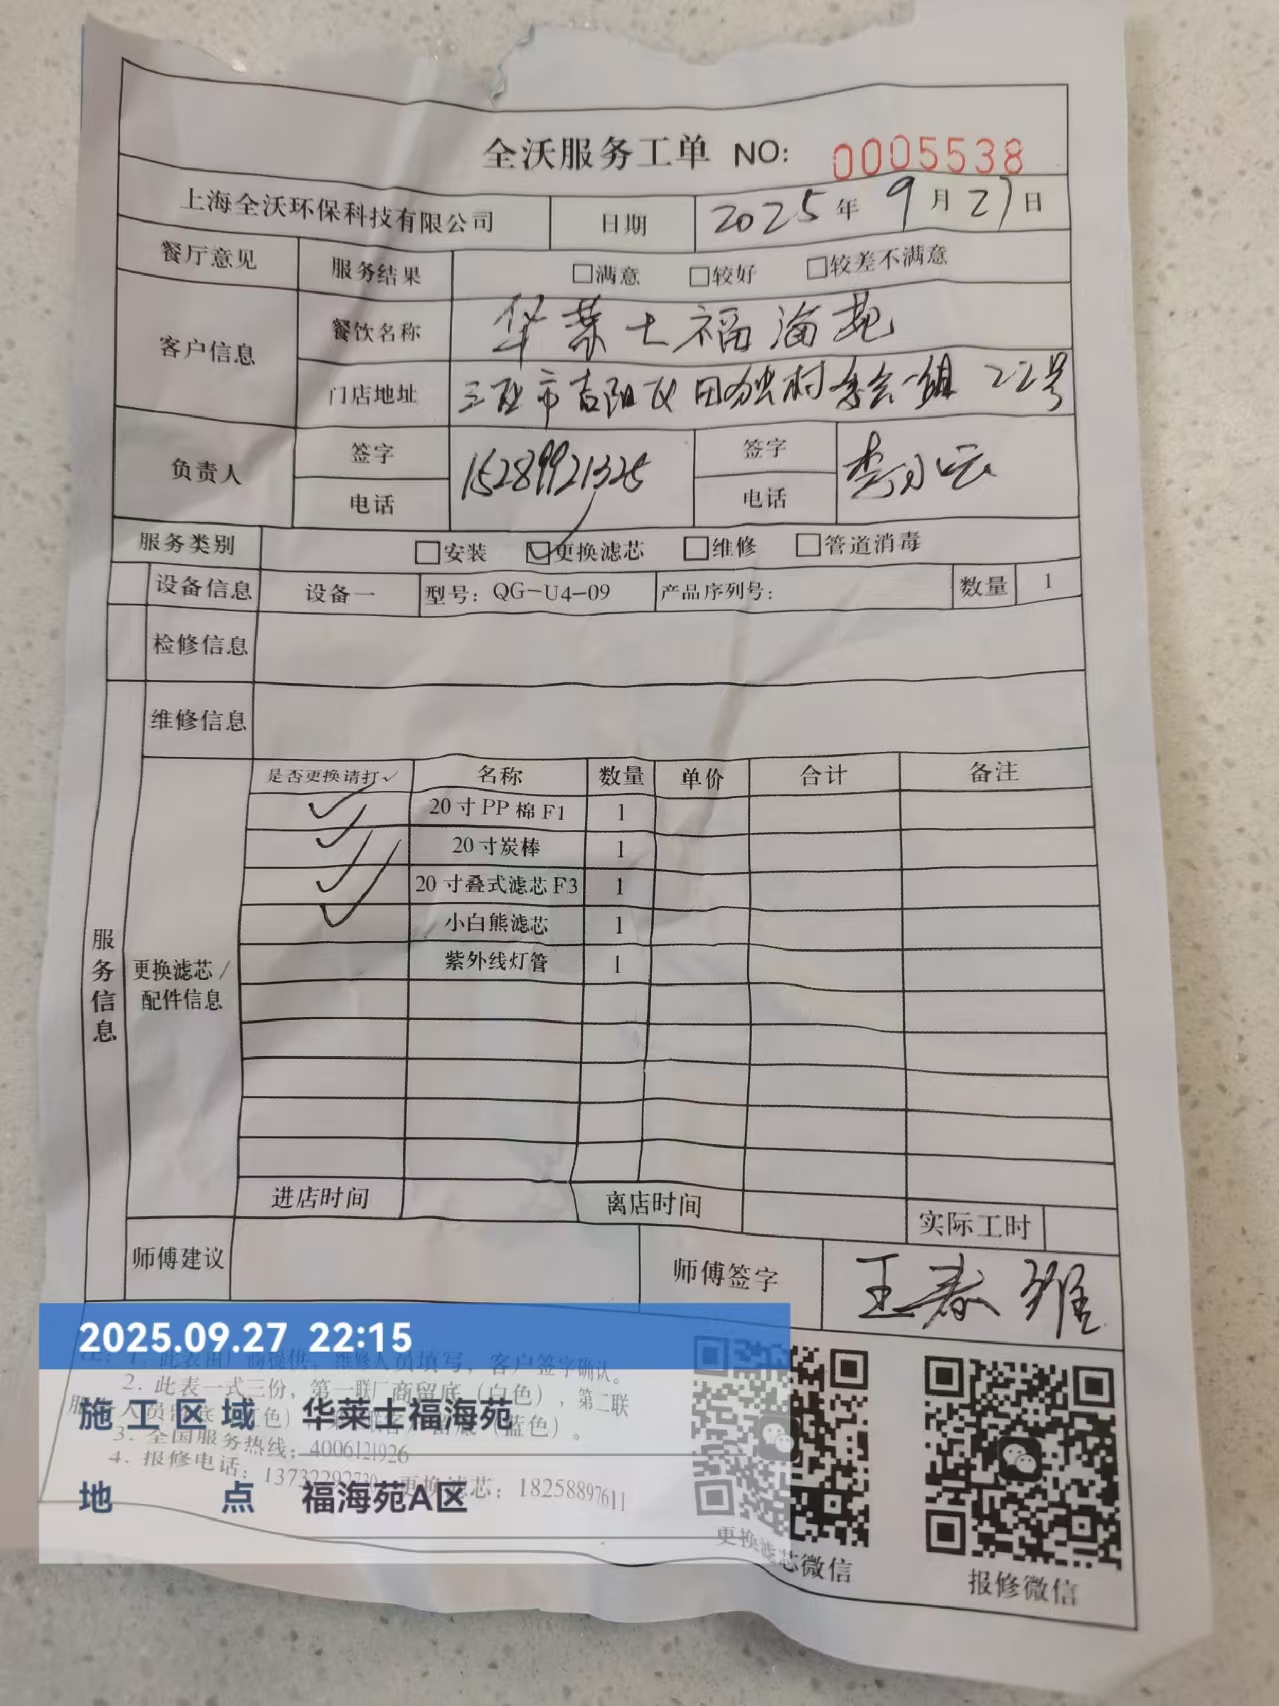 全沃服务工单 NO: 0005538
上海全沃环保科技有限公司 日期 2025年9月27日
餐厅意见 服务结果 □满意 □较好 □较差不满意
客户信息 餐饮名称 华莱士福海苑
门店地址 三亚市吉阳区田独村委会一组22号
负责人 签字 电话 15289921325 签字 电话 李
服务类别 □安装 ☑更换滤芯 □维修 □管道消毒
设备信息 设备一 型号: QG-U4-09 产品序列号: 数量 1
检修信息
维修信息
服务信息
更换滤芯/配件信息
是否更换请打✓ 名称 数量 单价 合计 备注
✓ 20寸PP棉F1 1
✓ 20寸炭棒 1
✓ 20寸叠式滤芯F3 1
✓ 小白熊滤芯 1
紫外线灯管 1
进店时间 离店时间 实际工时
师傅建议 师傅签字 王春雅
2025.09.27 22:15
注: 1. 此表由厂商提供, 维修人员填写, 客户签字确认。
2. 此表一式三份, 第一联厂商留底(白色), 第二联
3. 全国服务热线: 4006121926
4. 报修电话: 更换滤芯: 18258897611
施工区域 华莱士福海苑
地点 福海苑A区
更换滤芯微信 报修微信